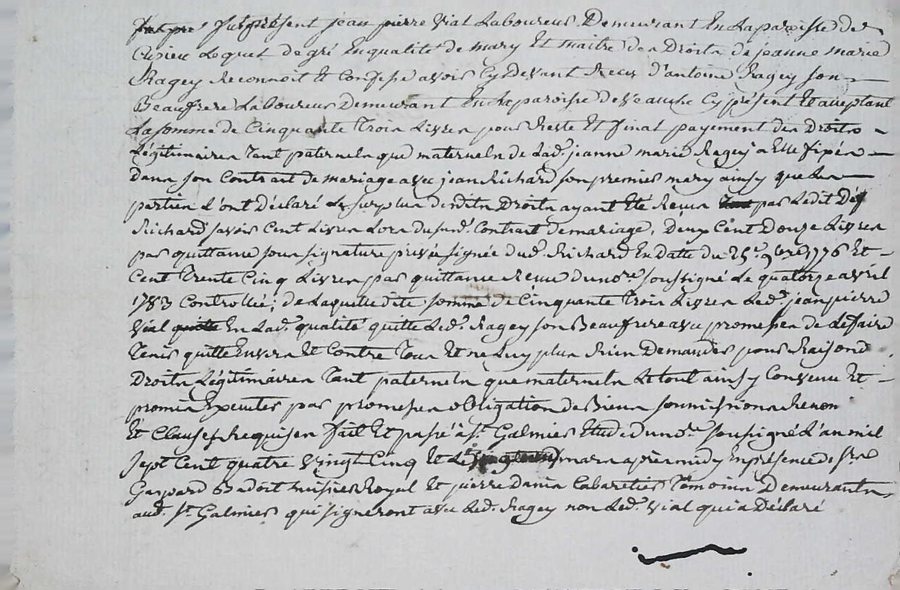 fut présent jean pierre vial Laboureur Demeurant En la paroisse de
Cuzieu Lequel de gré En qualité de mary Et maitre des Droits de jeanne marie
Ragey Reconnoit Et Confesse avoir Cy devant Reçu d'antoine Ragey son
Beaufrere Laboureur Demeurant En la paroisse de veauche Cy présent Et acceptant
La somme de Cinquante Trois Livres pour Reste Et final payement des Droits
Légitimaires Tant paternels que maternels de Lad. jeanne marie Ragey a Elle fixés
Dans son Contrat de mariage avec jean Richard son premier mary ainsy que Les
parties L'ont Déclaré Le surplus desdits Droits ayant Eté Reçus par Ledit
Richard savoir Cent Livres Lors dususd. Contrat de mariage, Deux Cent Douze Livres
par quittance sous signature privée signée dud. Richard En datte du 25e. 9bre 1776 Et
Cent Trente Cinq Livres par quittance Reçue du nore. soussigné Le quatorze avril
1783 Controllée; de Laquelle dite somme de Cinquante Trois Livres Led. jean pierre
vial En Lad. qualité quitte Led. Ragey son Beaufrere avec promesse de Le faire
Tenir quitte Envers Et Contre Tous Et ne Luy plus Rien Demander pour Raison d.
Droits Légitimaires Tant paternels que maternels Le tout ainsy Convenu Et
promis Executer par promesses obligation de Biens soumissions Renon.
Et Clauses Requises fait Et passé à St. Galmier Etude du nore. soussigné L'an mil
sept Cent quatre vingt Cinq Et Le mars après midy En présence de sr.
Gaspard Royal Et pierre Cabaretier Témoins Demeurants
aud. St. Galmier qui signeront avec Led. Ragey non Led. vial qui a Déclaré